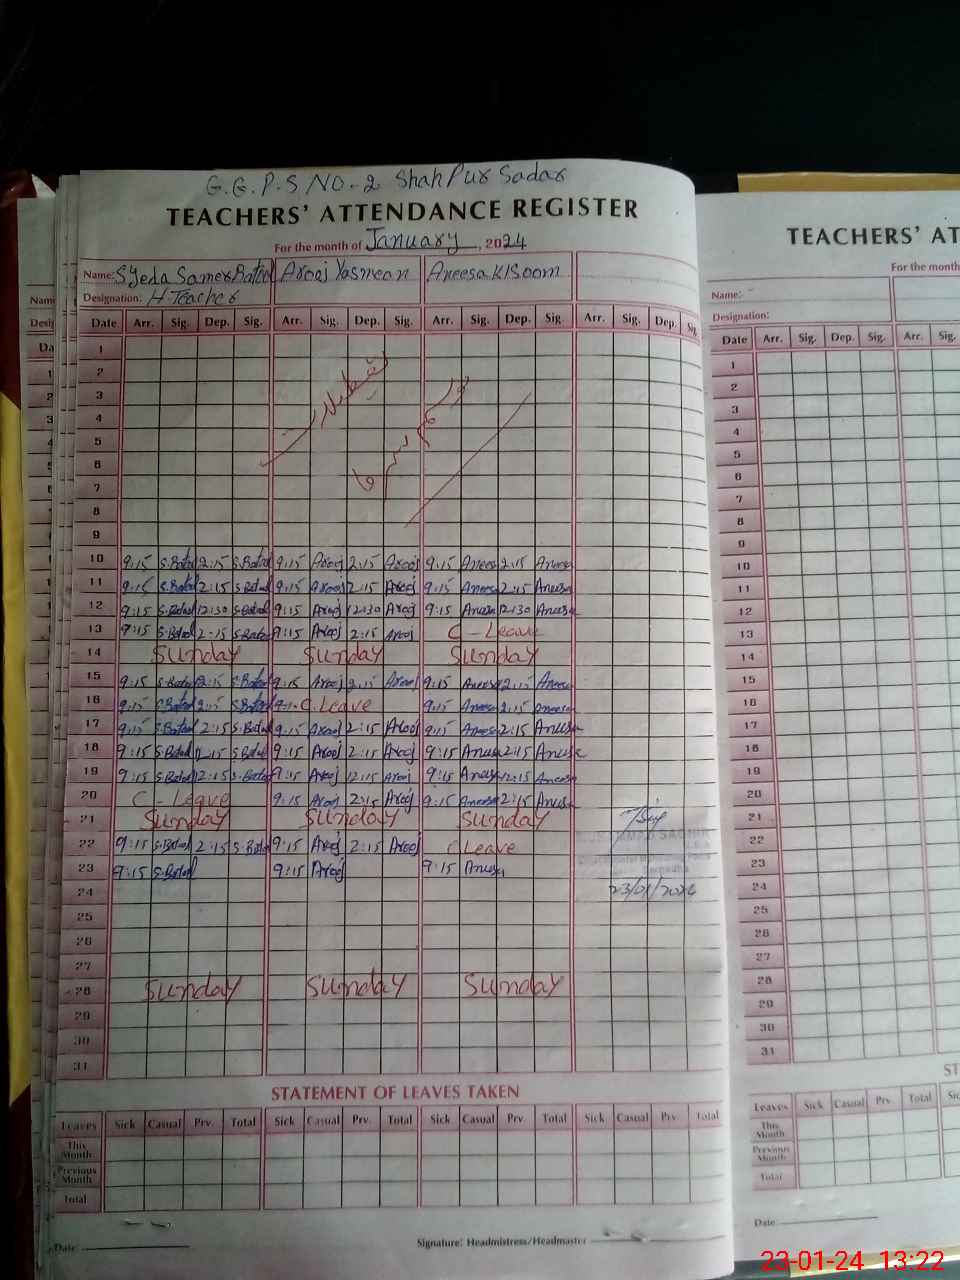 G.G.P.S NO-2 Shah Pur Sadar
TEACHERS' ATTENDANCE REGISTER
For the month of January, 2024
Name: Syeda Samer Batool Arooj Yasmeen Aneesa Klsoom
Designation: H.Teacher
Date Arr. Sig. Dep. Sig. Arr. Sig. Dep. Sig. Arr. Sig. Dep. Sig. Arr. Sig. Dep. Sig.
1
2
3
4
5
6
7
8
9
10 9:15 S.Batool 2:15 S.Batool 9:15 Arooj 2:15 Arooj 9:15 Aneesa 2:15 Aneesa
11 9:15 S.Batool 2:15 S.Batool 9:15 Arooj 2:15 Arooj 9:15 Aneesa 2:15 Aneesa
12 9:15 S.Batool 12:30 S.Batool 9:15 Arooj 12:30 Arooj 9:15 Aneesa 12:30 Aneesa
13 9:15 S.Batool 2:15 S.Batool 9:15 Arooj 2:15 Arooj C-Leave
14 Sunday Sunday Sunday
15 9:15 S.Batool 2:15 S.Batool 9:15 Arooj 2:15 Arooj 9:15 Aneesa 2:15 Aneesa
16 9:15 S.Batool 2:15 S.Batool C.Leave 9:15 Aneesa 2:15 Aneesa
17 9:15 S.Batool 2:15 S.Batool 9:15 Arooj 2:15 Arooj 9:15 Aneesa 2:15 Aneesa
18 9:15 S.Batool 2:15 S.Batool 9:15 Arooj 2:15 Arooj 9:15 Aneesa 2:15 Aneesa
19 9:15 S.Batool 12:15 S.Batool 9:15 Arooj 12:15 Arooj 9:15 Aneesa 12:15 Aneesa
20 C-Leave 9:15 Arooj 2:15 Arooj 9:15 Aneesa 2:15 Aneesa
21 Sunday Sunday Sunday
22 9:15 S.Batool 2:15 S.Batool 9:15 Arooj 2:15 Arooj C Leave
23 9:15 S.Batool 9:15 Arooj 9:15 Aneesa
24 23/01/2024
25
26
27
28 Sunday Sunday Sunday
29
30
31
STATEMENT OF LEAVES TAKEN
Leaves Sick Casual Prv. Total Sick Casual Prv. Total Sick Casual Prv. Total Sick Casual Prv. Total
This Month
Previous Month
Total
Date:
Signature: Headmistress/Headmaster
TEACHERS' AT
For the month
Name:
Designation:
Date Arr. Sig. Dep. Sig. Arr. Sig.
1
2
3
4
5
6
7
8
9
10
11
12
13
14
15
16
17
18
19
20
21
22
23
24
25
26
27
28
29
30
31
ST
Leaves Sick Casual Prv. Total
This Month
Previous Month
Total
Date:
23-01-24 13:22